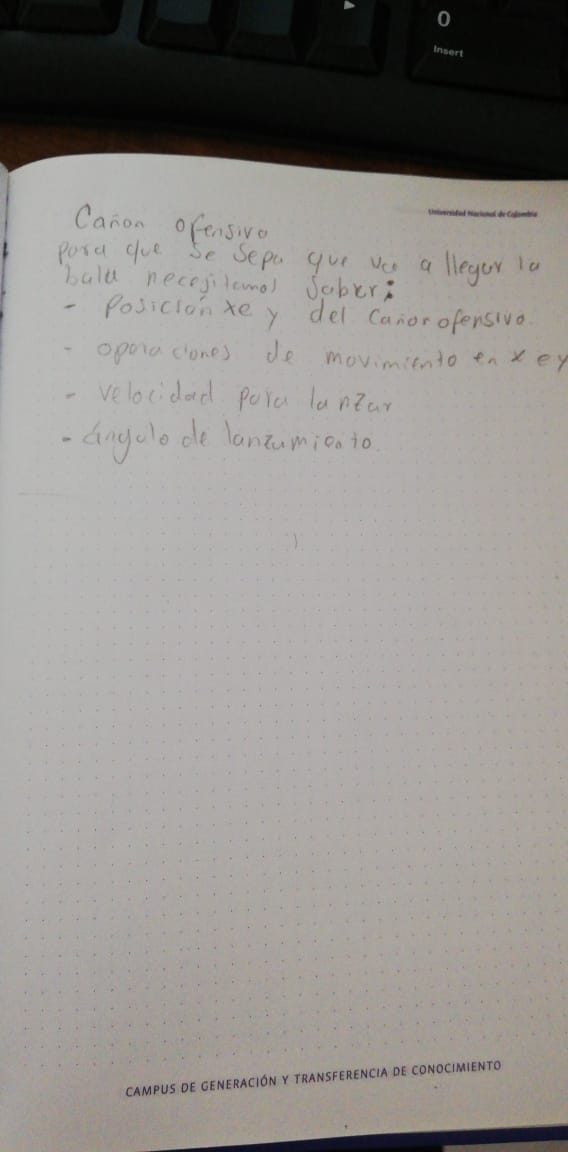 0
Insert
Universidad Nacional de Colombia
Cañon ofensivo
para que se sepa que va a llegar la
bala necesitamos saber:
- Posición x e y del cañon ofensivo.
- operaciones de movimiento en x e y
- velocidad para lanzar
- ángulo de lanzamiento.
CAMPUS DE GENERACIÓN Y TRANSFERENCIA DE CONOCIMIENTO